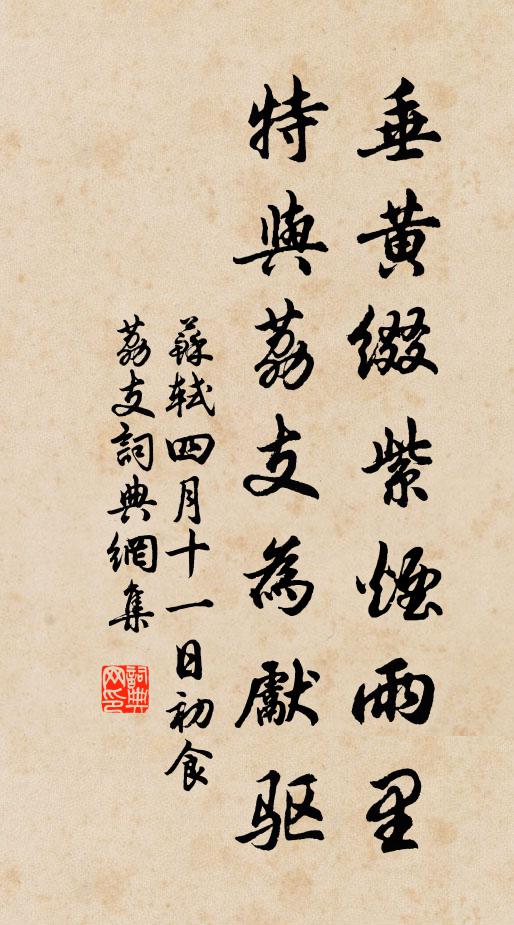 垂黄綴紫煙雨里
特與荔支為獻驱
蘇軾四月十一日初食
荔支詞典網集
詞典
网印